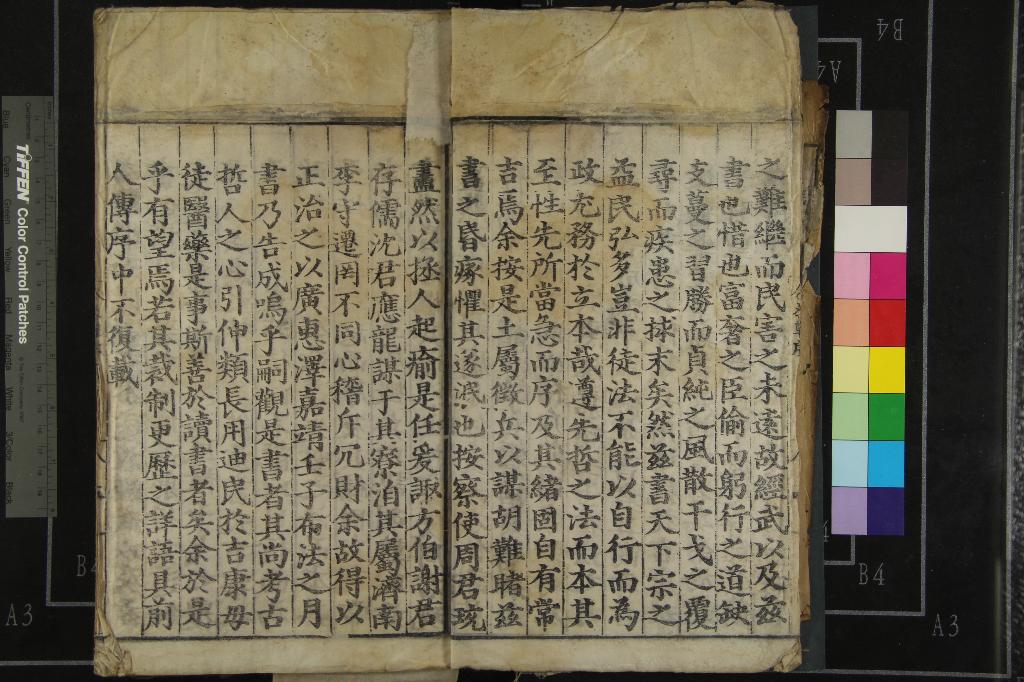 之難繼而民害之未遠故經武以及茲
書也惜也富奢之臣偷而躬行之道缺
支蔓之習勝而貞純之風散干戈之覆
尋而疾患之捄末矣然茲書天下宗之
益民弘多豈非徒法不能以自行而為
政尤務於立本哉遵先哲之法而本其
至性先所當急而序及其緒固自有常
吉焉余按是土屬徵兵以謀胡難睹茲
書之昏瘝懼其遂泯也按察使周君珫
盡然以拯人起瘉是任爰諏方伯謝君
存儒沈君應龍謀于其寮洎其屬濟南
李守遷罔不同心稽斤冗財余故得以
正治之以廣惠澤嘉靖壬子布法之月
書乃告成嗚乎嗣觀是書者其尚考古
哲人之心引伸類長用迪民於吉康毋
徒醫藥是事斯善於讀書者矣余於是
乎有望焉若其裁制更歷之詳語具前
人傳序中不復載
TIFFEN Color Control Patches
Blue
Cyan
Green
Yellow
Red
Magenta
White
3/Color
Black
B4
A4
B4
A3
B4
A3